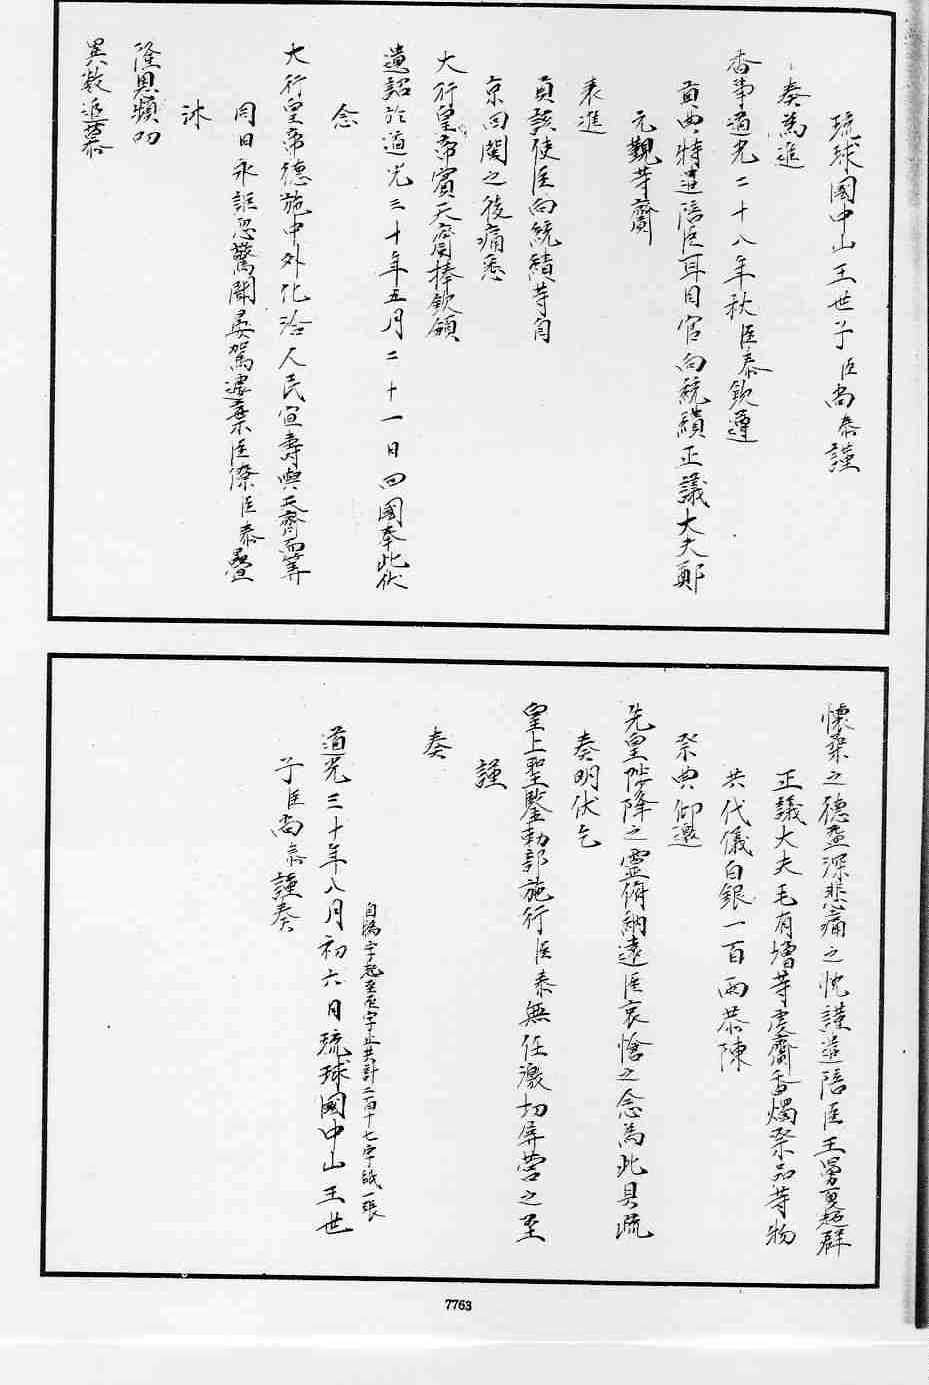 琉球國中山王世子臣尚泰謹
奏為進
香事道光二十八年秋臣泰欽遵
貢典特遣陪臣耳目官向統績正議大夫鄭
元覲等齎
表進
貢該使臣向統績等自
京回閩之後痛悉
大行皇帝賓天齎捧欽頒
遺詔於道光三十年五月二十一日回國奉此伏
念
大行皇帝德施中外化洽人民宜壽與天齊而算
同日永詎忽驚聞晏駕遽棄臣僚臣泰疊
沐
隆恩頻叨
異數追慕
懷柔之德益深悲痛之忱謹遣陪臣王舅夏超群
正議大夫毛有增等虔齎香燭祭品等物
共代儀白銀一百兩恭陳
祭典仰邀
先皇陟降之靈俯納遠臣哀愴之念為此具疏
奏明伏乞
皇上聖鑒勅部施行臣泰無任激切屏營之至
謹
奏
自為字起至至字止共計二百十七字紙一張
道光三十年八月初六日琉球國中山王世
子臣尚泰謹奏
7763